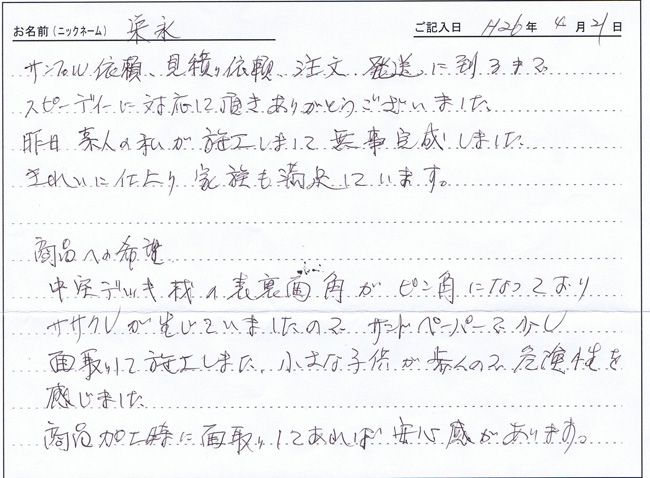 お名前(ニックネーム) 栄永 ご記入日 H26年 4月21日
サンプル依頼、見積り依頼、注文、発送に到るまで
スピーディーに対応して頂きありがとうございました。
昨日素人の私が施工しまして無事完成しました。
きれいに仕上り家族も満足しています。
商品への希望
中空デッキ材の表裏面角がピン角になっており
ササクレが生じていましたのでサンドペーパーで少し
面取りして施工しました。小さな子供が歩くので危険性を
感じました
商品加工時に面取りしてあれば安心感があります。